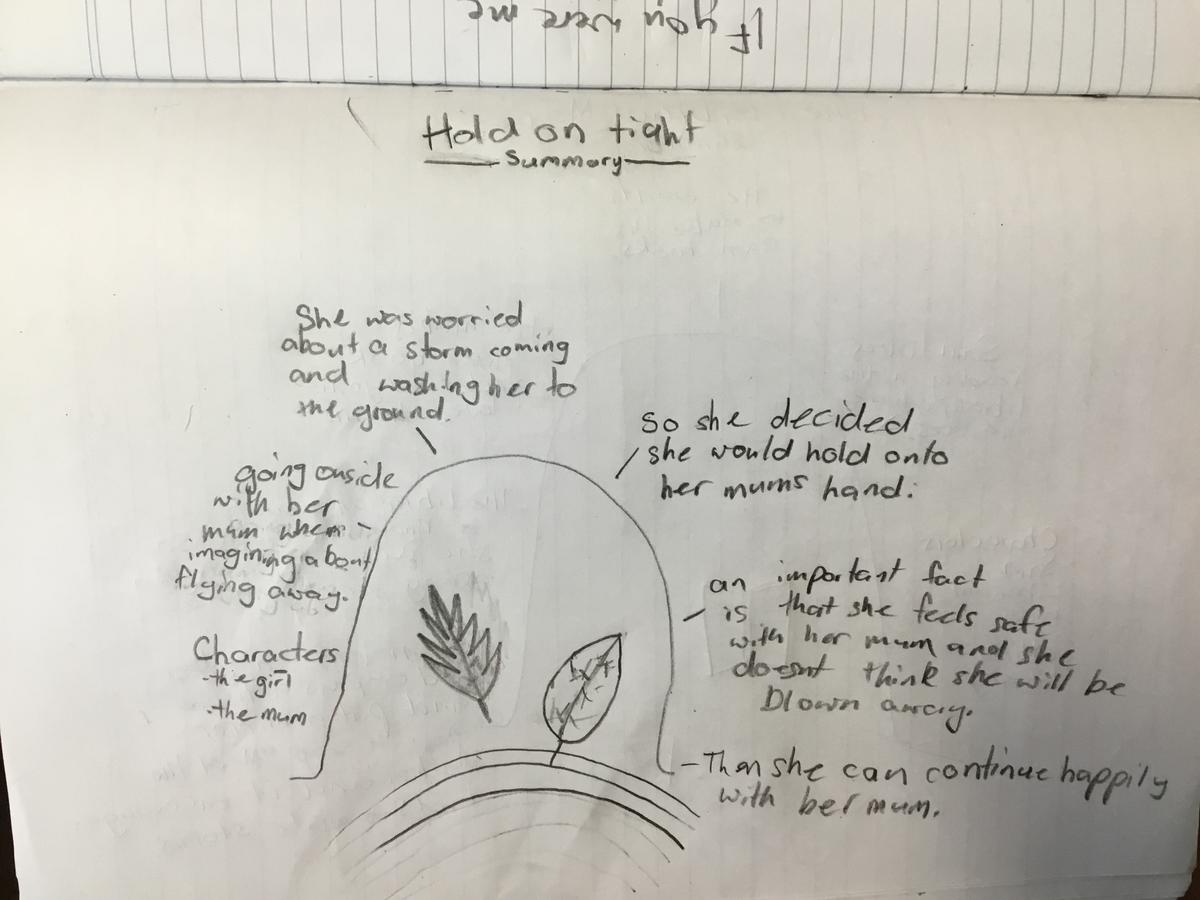 If you were me
Hold on tight
Summary
She was worried
about a storm coming
and washing her to
the ground.
so she decided
she would hold onto
her mums hand.
going ouside
with her
mum when
imagining about
flying away.
Characters
-the girl
-the mum
an important fact
is that she feels safe
with her mum and she
doesnt think she will be
Blown away.
-Then she can continue happily
with her mum.